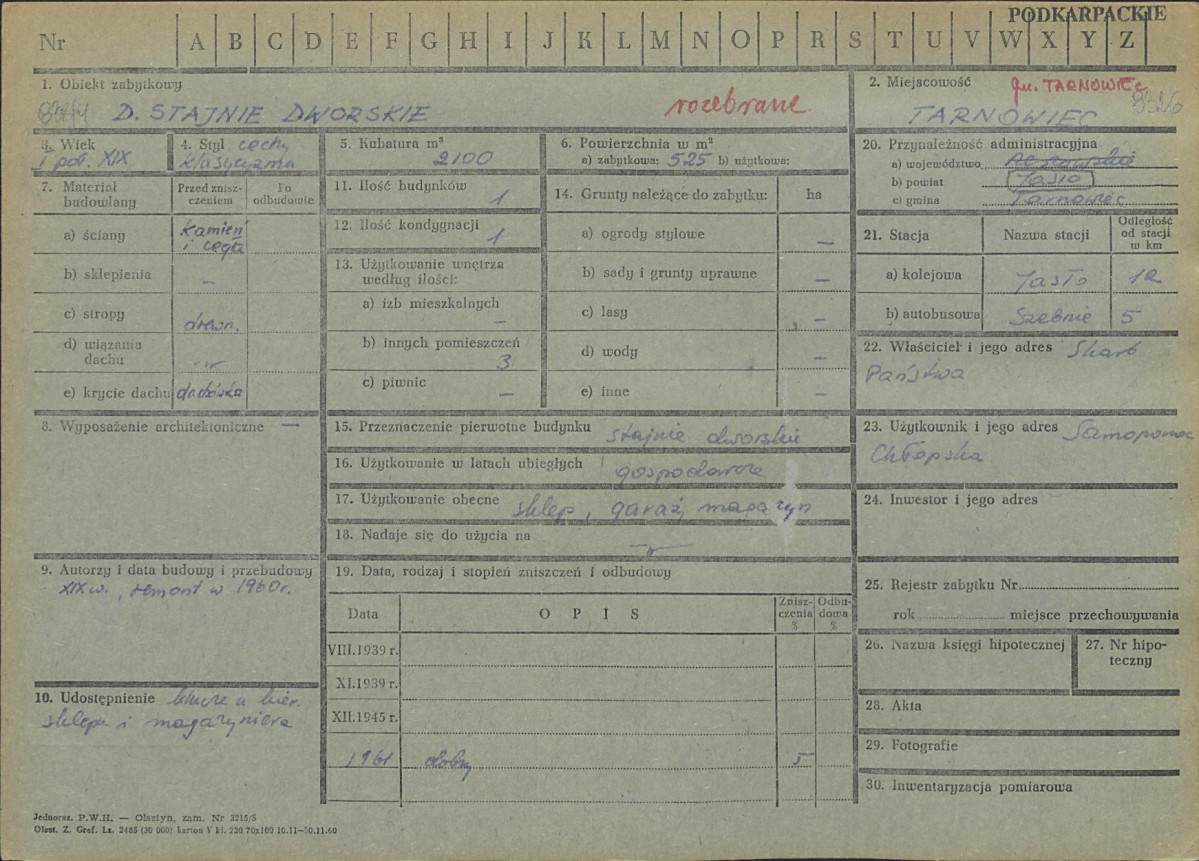 PODKARPACKIE
Nr A B C D E F G H I J K L M N O P R S T U V W X Y Z
1. Obiekt zabytkowy
D. STAJNIE DWORSKIE
rozebrane
2. Miejscowość
gm. TARNOWIEC
TARNOWIEC
3. Wiek
I poł. XIX
4. Styl cechy
klasycyzmu
5. Kubatura m³
2100
6. Powierzchnia w m²
a) zabytkowa: 525 b) użytkowa:
7. Materiał budowlany
Przed zniszczeniem
Po odbudowie
a) ściany kamień i cegła
b) sklepienia —
c) stropy drewn.
d) wiązania dachu -"-
e) krycie dachu dachówka
8. Wyposażenie architektoniczne —
9. Autorzy i data budowy i przebudowy
XIX w., remont w 1960 r.
10. Udostępnienie klucze u kier.
sklepu i magazyniera
11. Ilość budynków
1
12. Ilość kondygnacji
1
13. Użytkowanie wnętrza
według ilości:
a) izb mieszkalnych
—
b) innych pomieszczeń
3
c) piwnic
—
14. Grunty należące do zabytku: ha
a) ogrody stylowe —
b) sady i grunty uprawne —
c) lasy —
d) wody —
e) inne —
15. Przeznaczenie pierwotne budynku stajnie dworskie
16. Użytkowanie w latach ubiegłych gospodarcze
17. Użytkowanie obecne sklep, garaż, magazyn
18. Nadaje się do użycia na
-"-
19. Data, rodzaj i stopień zniszczeń i odbudowy
Data O P I S Zniszczenia % Odbudowa %
VIII.1939 r.
XI.1939 r.
XII.1945 r.
1961 dobry 5
20. Przynależność administracyjna
a) województwo Rzeszowskie
b) powiat Jasło
c) gmina Tarnowiec
21. Stacja Nazwa stacji Odległość od stacji w km
a) kolejowa Jasło 12
b) autobusowa Szebnie 5
22. Właściciel i jego adres Skarb
Państwa
23. Użytkownik i jego adres Samopomoc
Chłopska
24. Inwestor i jego adres
25. Rejestr zabytku Nr
rok miejsce przechowywania
26. Nazwa księgi hipotecznej
27. Nr hipoteczny
28. Akta
29. Fotografie
30. Inwentaryzacja pomiarowa
Jednoraz. P.W.H. — Olsztyn, zam. Nr 3215/S
Olszt. Z. Graf. Lz. 2485 (30 000) karton V kl. 220 70x100 10.11—30.11.60